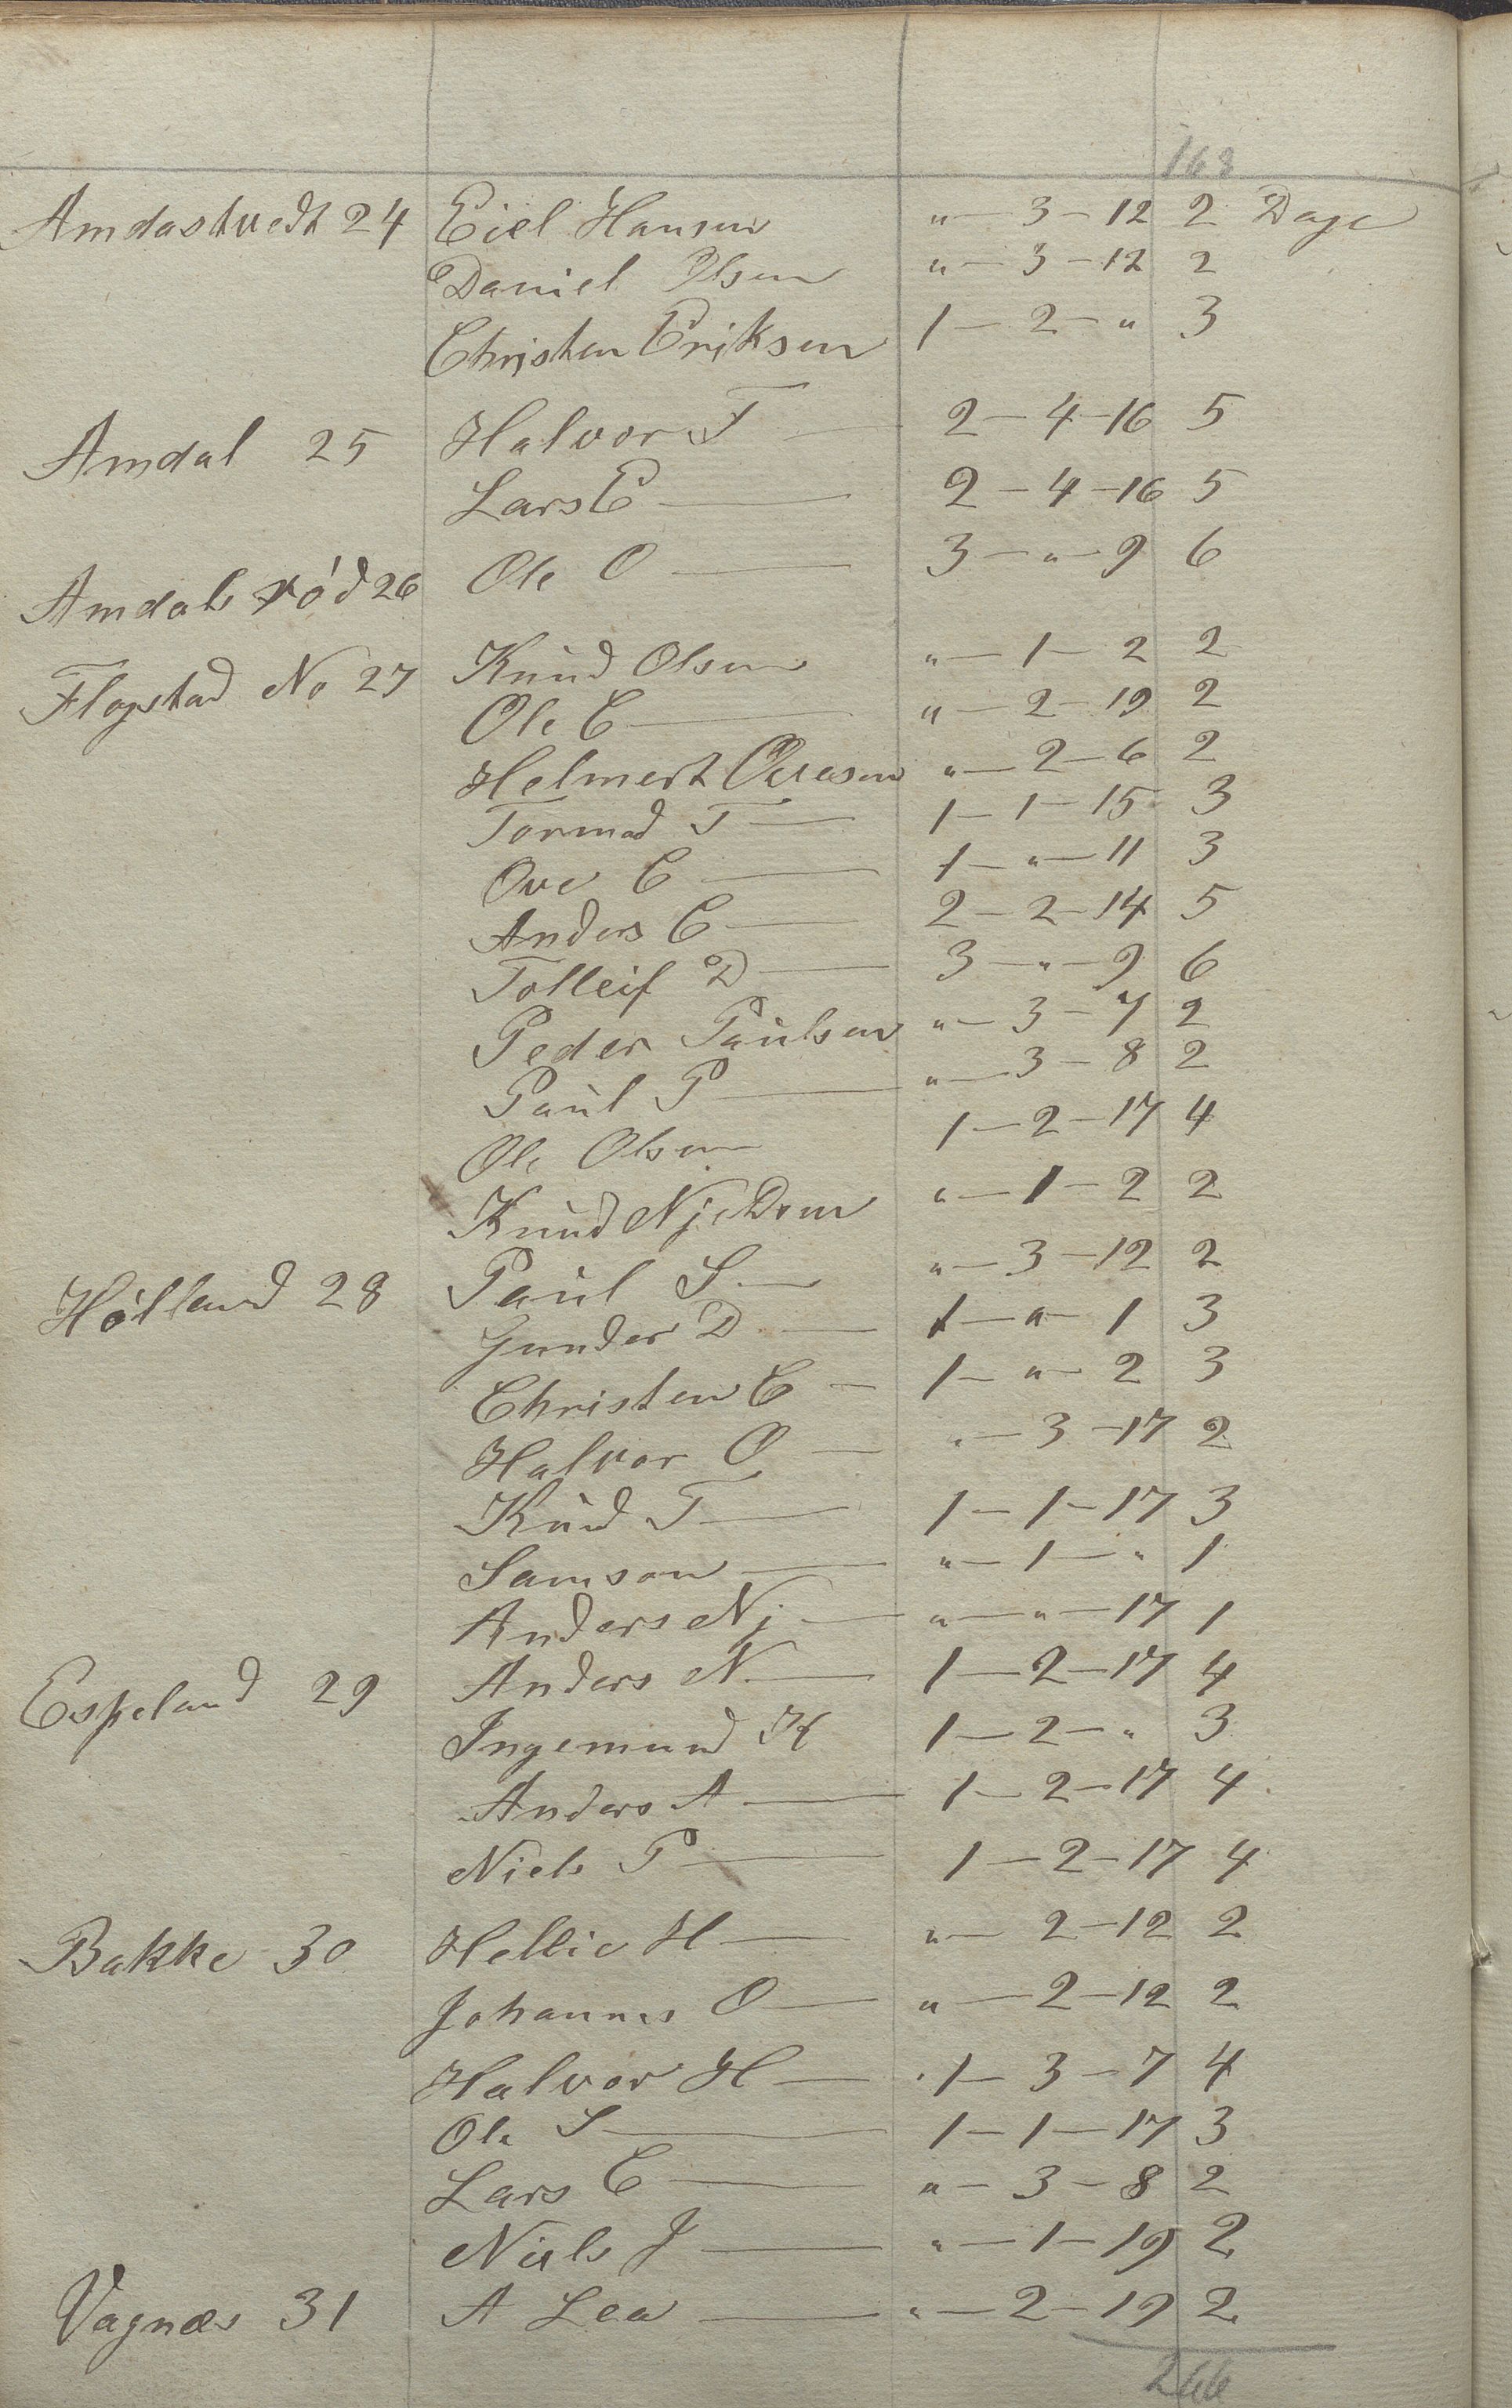 168
Amdastvedt 24 Eiel Hansen " — 3 — 12 2 Dage
Daniel Olsen " — 3 — 12 2
Christen Eriksen 1 — 2 — " 3
Amdal 25 Halvor T — 2 — 4 — 16 5
Lars E — 2 — 4 — 16 5
Amdals rød 26 Ole O — 3 — " — 9 6
Flogstad No 27 Knud Olsen " — 1 — 2 2
Ole C — " — 2 — 19 2
Helmert " — 2 — 6 2
Tormod T — 1 — 1 — 15 3
Ove C — 1 — " — 11 3
Anders C — 2 — 2 — 14 5
Tolleif D — 3 — " — 9 6
Peder Paulsen " — 3 — 7 2
Paul P — " — 3 — 8 2
Ole Olsen 1 — 2 — 17 4
Knud " — 1 — 2 2
Hölland 28 Paul S — " — 3 — 12 2
Gunder D — 1 — " — 1 3
Christen C — 1 — " — 2 3
Halvor O — " — 3 — 17 2
Knud T — 1 — 1 — 17 3
Samson — " — 1 — " 1
Anders Nj — " — " — 17 1
Espeland 29 Anders N — 1 — 2 — 17 4
Ingemund K 1 — 2 — " 3
Anders A — 1 — 2 — 17 4
Niels P — 1 — 2 — 17 4
Bakke 30 Hellie H — " — 2 — 12 2
Johannes O — " — 2 — 12 2
Halvor H — 1 — 3 — 7 4
Ole S — 1 — 1 — 17 3
Lars C — " — 3 — 8 2
Niels J — " — 1 — 19 2
Vagnæs 31 A Lea — " — 2 — 19 2
266